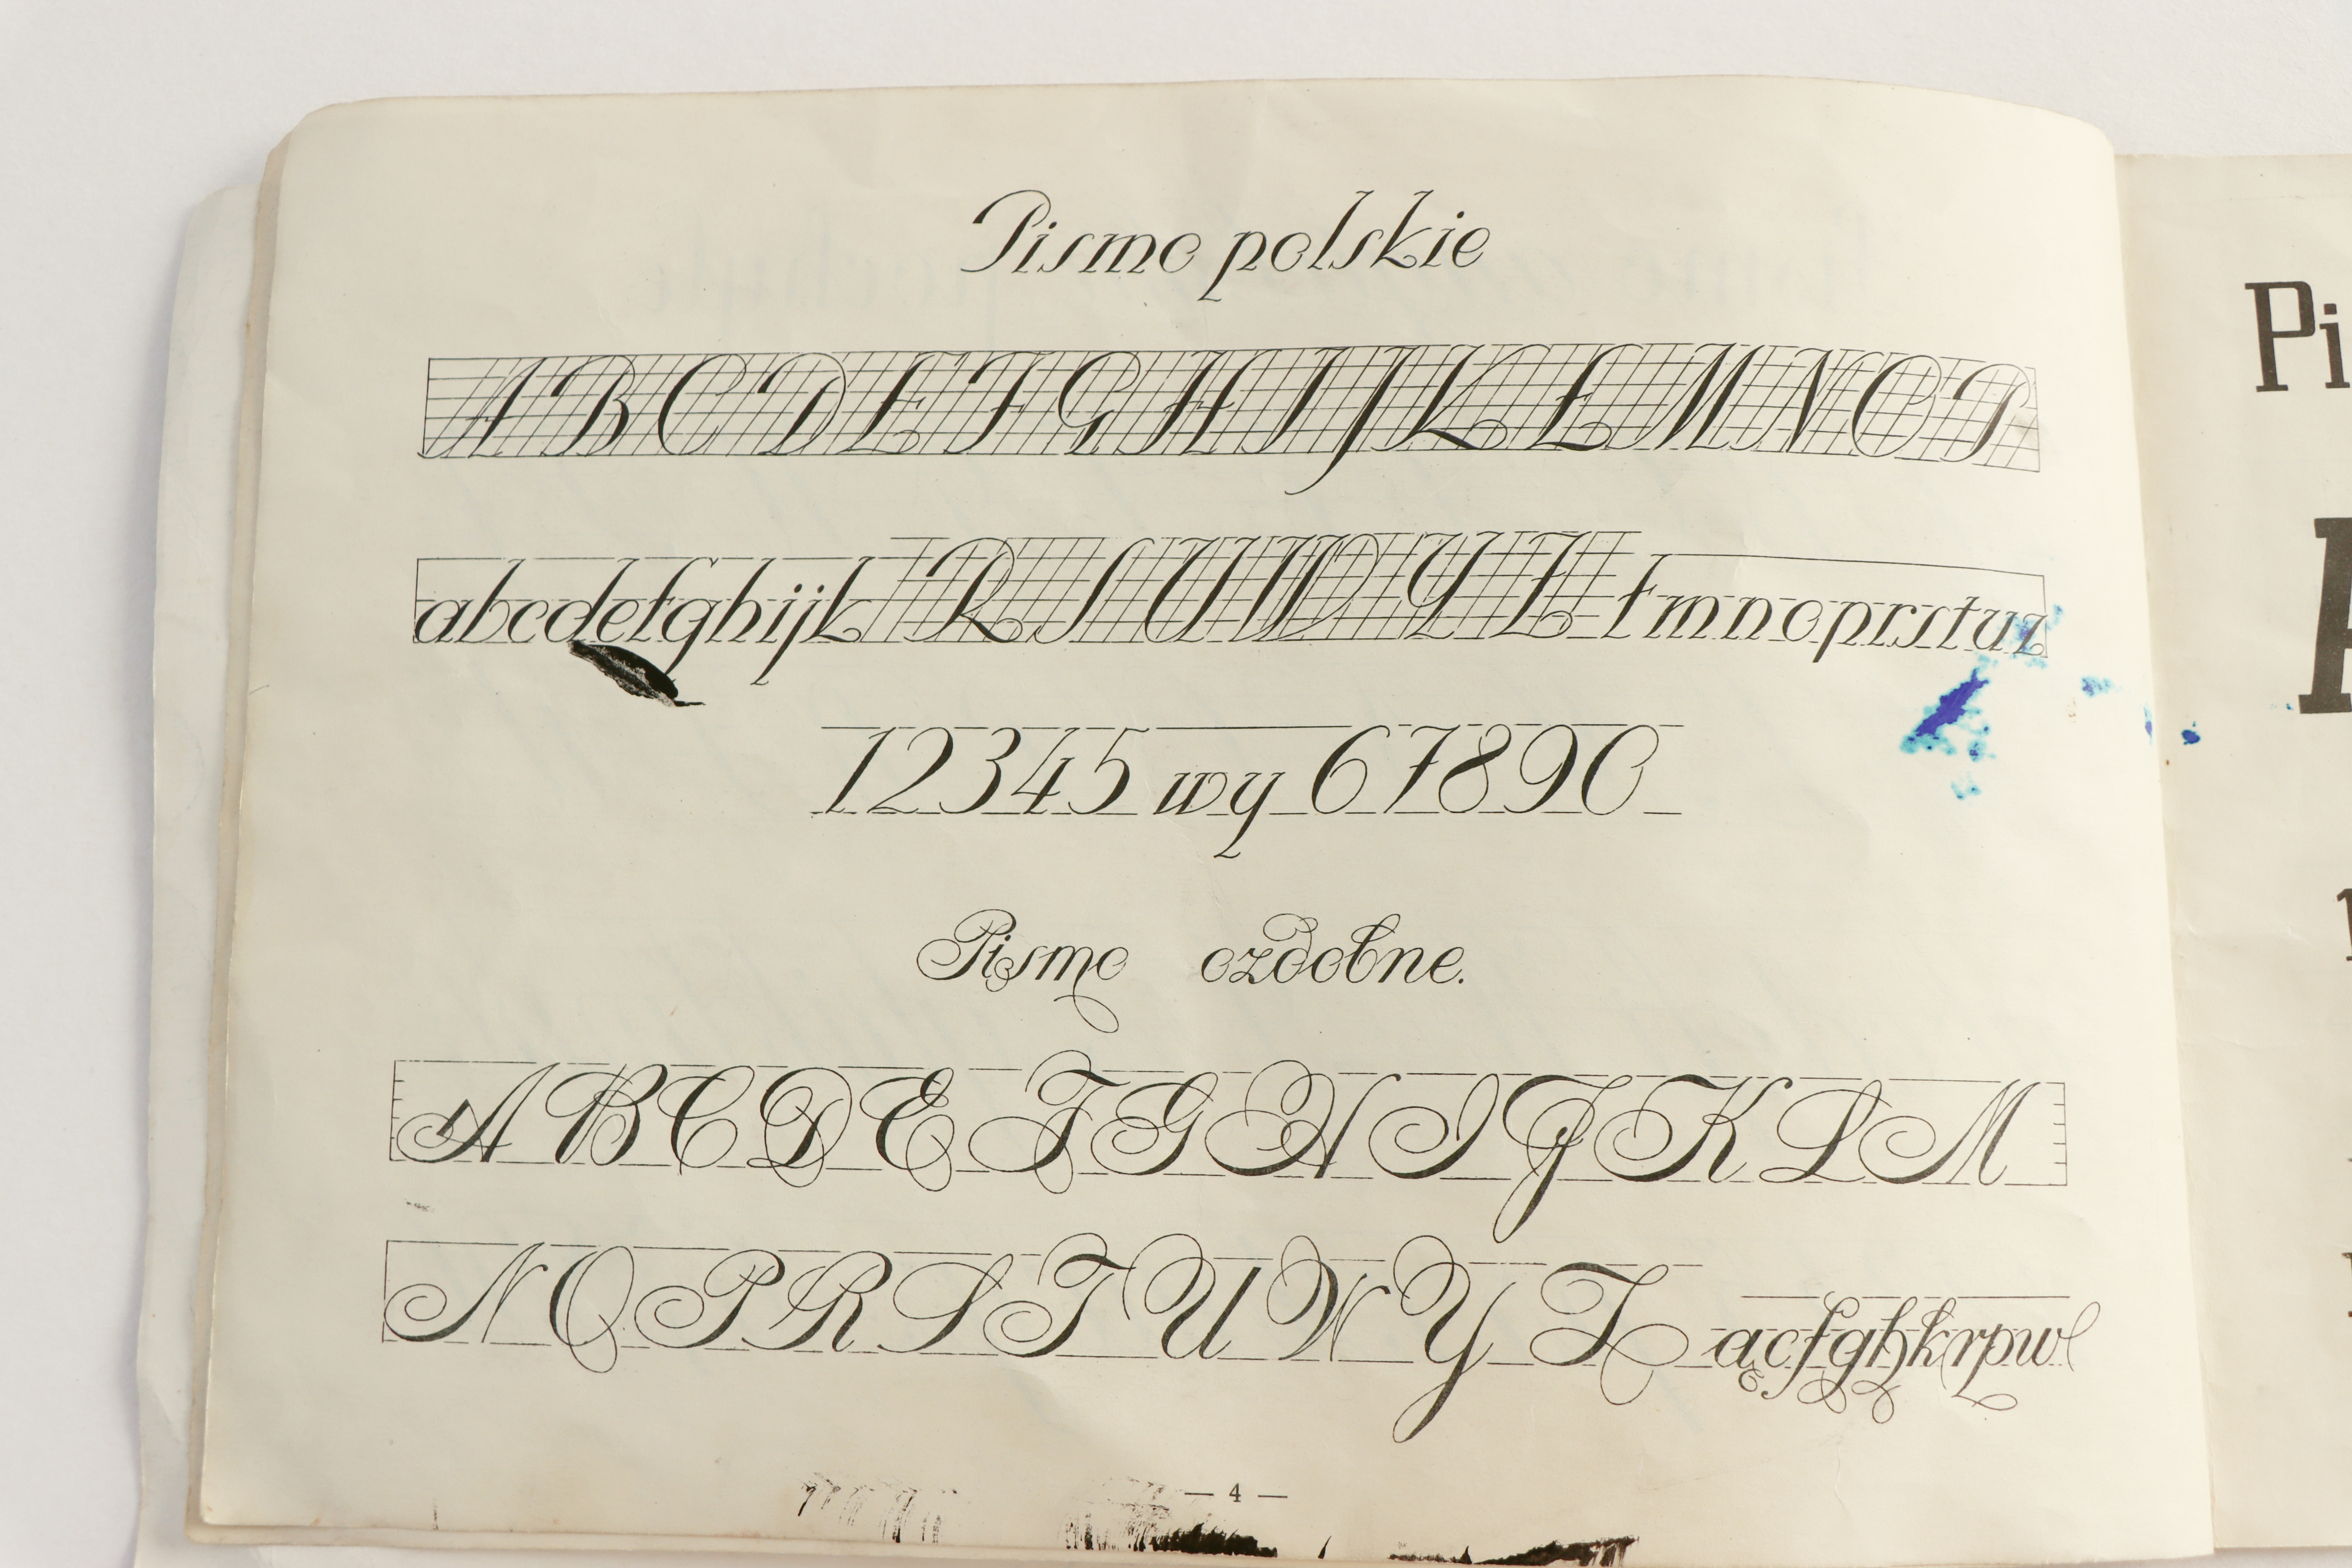 Pismo polskie
ABCDEFGHIJKŁMNOP
abcdefghijk RSUWYZ łmnoprstuz
12345 wy 67890
Pismo ozdobne.
ABCDEFGHIJKLM
NOPRSTUWYZ ącfghkrpw
— 4 —
Pi